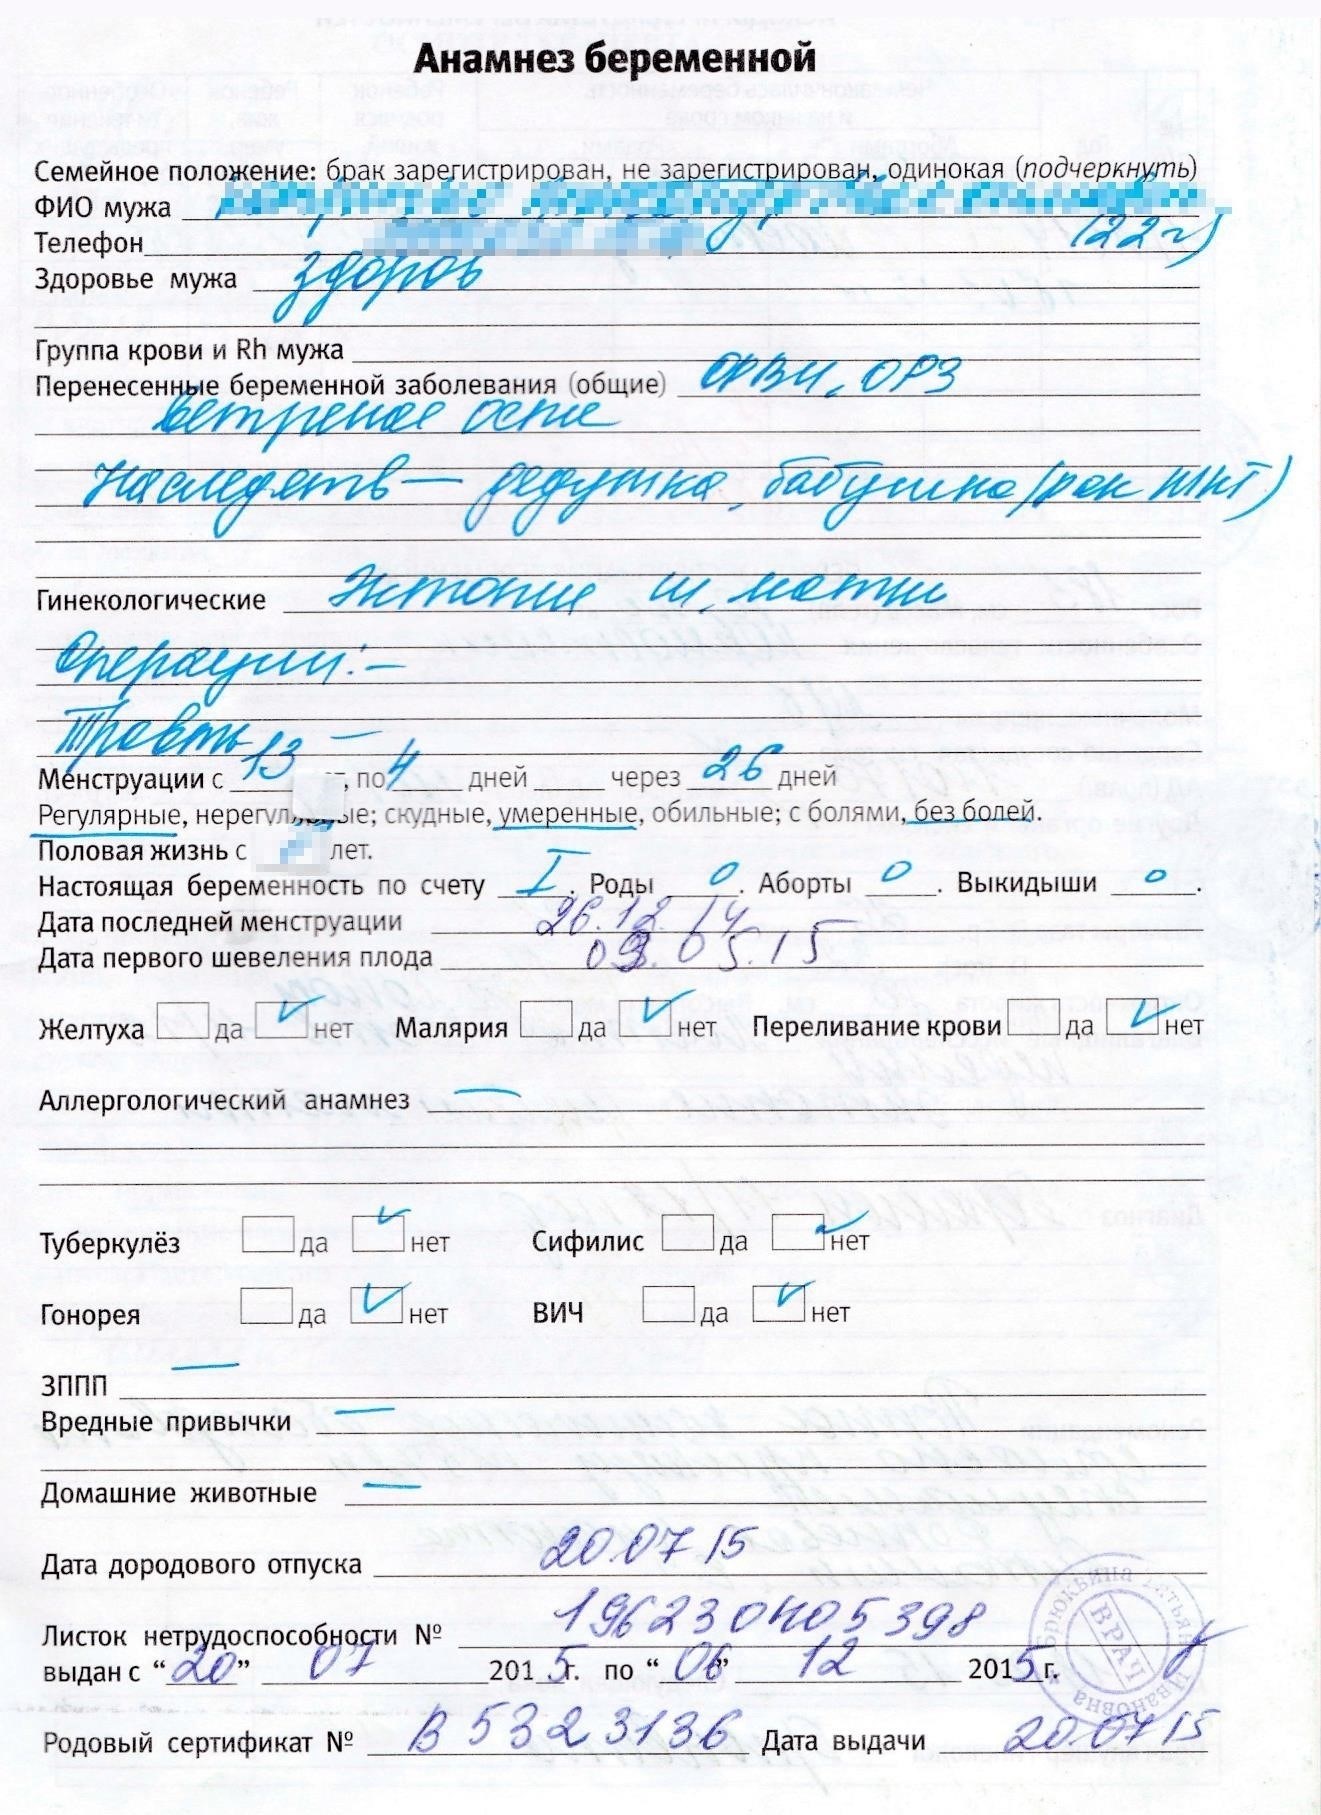 Анамнез беременной
Семейное положение: брак зарегистрирован, не зарегистрирован, одинокая (подчеркнуть)
ФИО мужа
Телефон (22 г)
Здоровье мужа здоров
Группа крови и Rh мужа
Перенесенные беременной заболевания (общие) ОРВИ, ОРЗ
ветреная оспа
Наследств — дедушка, бабушка (рак ЖКТ)
Гинекологические Эктопия ш. матки
Операции: –
Травмы –
Менструации с 13 , по 4 дней через 26 дней
Регулярные, нерегулярные; скудные, умеренные, обильные; с болями, без болей.
Половая жизнь с лет.
Настоящая беременность по счету I . Роды 0 . Аборты 0 . Выкидыши 0 .
Дата последней менструации 26.12.14
Дата первого шевеления плода 05.15
Желтуха да нет Малярия да нет Переливание крови да нет
Аллергологический анамнез —
Туберкулёз да нет Сифилис да нет
Гонорея да нет ВИЧ да нет
ЗППП —
Вредные привычки —
Домашние животные —
Дата дородового отпуска 20.07 15
Листок нетрудоспособности №
выдан с “20” 07 2015г. по “06” 12 2015г.
Родовый сертификат № В 5323136 Дата выдачи 20.07 15
Брюквина Татьяна Ивановна
ВРАЧ